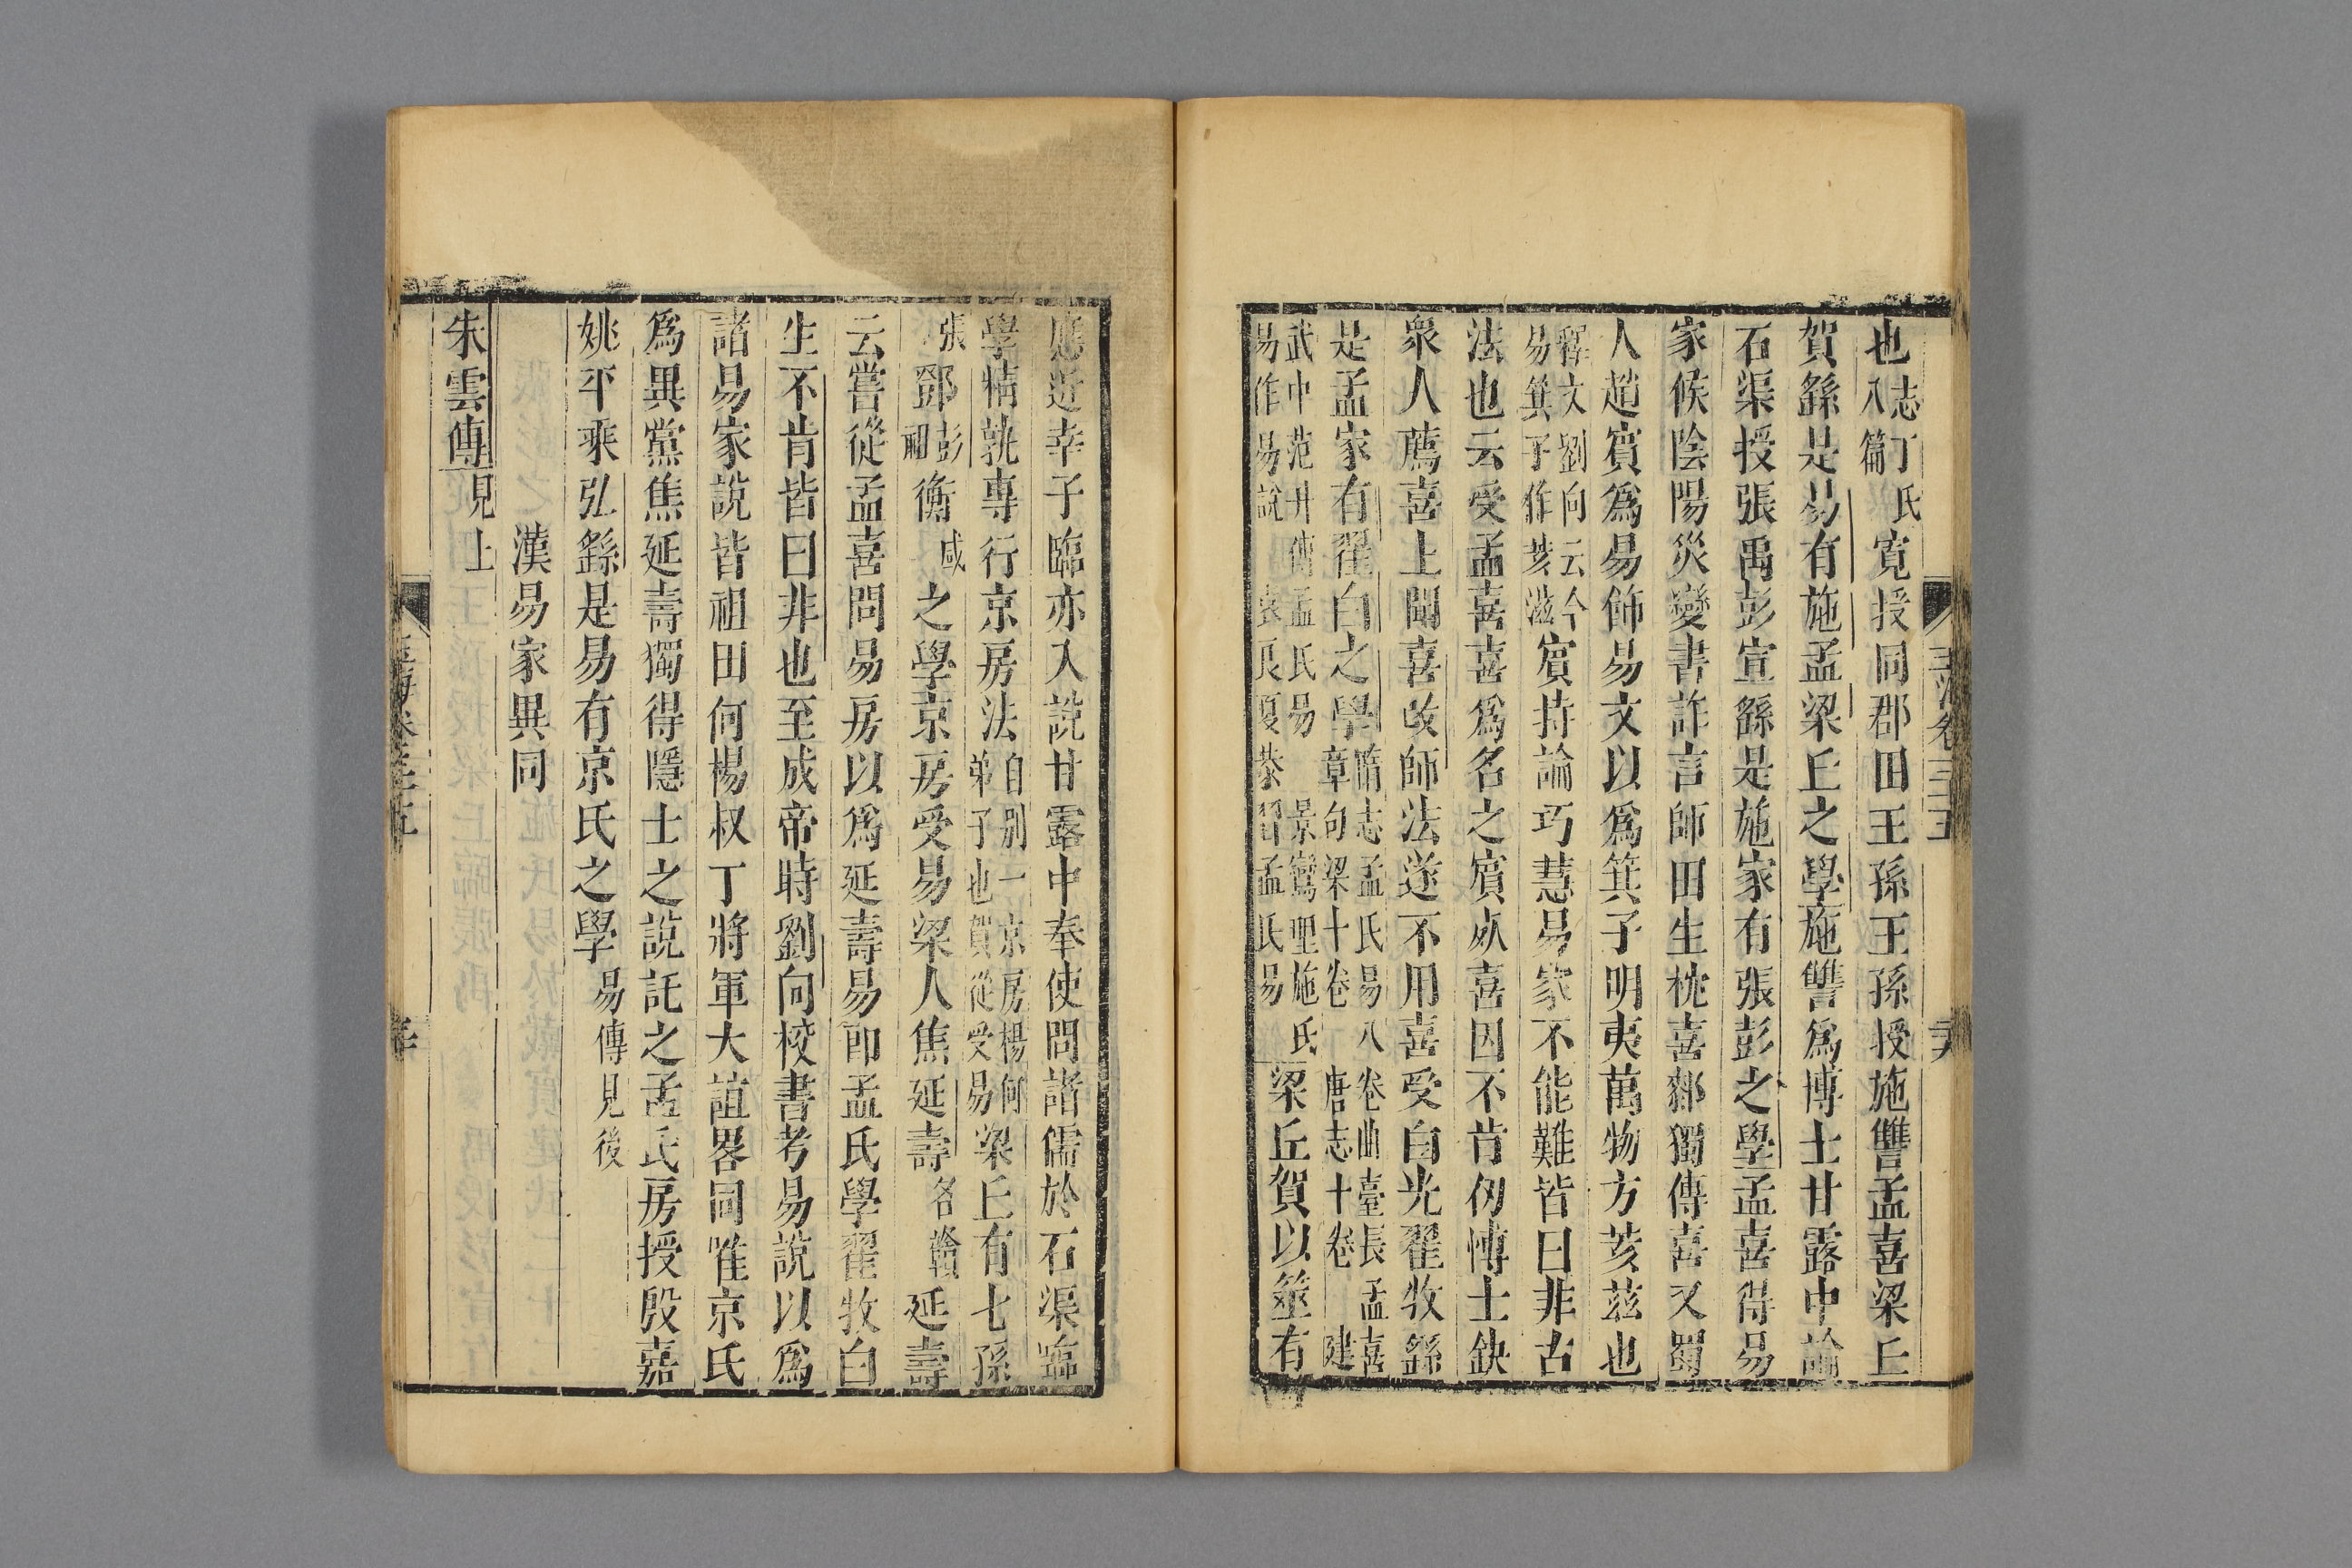 也志丁氏八篇寛授同郡田王孫王孫授施讐孟喜梁丘
賀繇是易有施孟梁丘之學施讐爲博士甘露中論
石渠授張禹彭宣繇是施家有張彭之學孟喜得易
家候陰陽災變書詐言師田生枕喜厀獨傳喜又蜀
人趙賓爲易飾易文以爲箕子明夷萬物方荄兹也
釋文劉向云今易箕子作荄滋賓持論巧慧易家不能難皆曰非古
法也云受孟喜喜爲名之賓死喜因不肯仞博士缺
衆人薦喜上聞喜改師法遂不用喜受白光翟牧繇
是孟家有翟白之學隋志孟氏易八卷曲臺長孟喜章句梁十卷唐志十卷建
武中范升傳孟氏易景鸞理施氏易作易說袁良夏恭習孟氏易梁丘賀以筮有
應近幸子臨亦入說甘露中奉使問諸儒於石渠臨
學精孰專行京房法自別一京房楊何弟子也賀從受易梁丘有七孫
張鄧彭祖衡咸之學京房受易梁人焦延壽名贛延壽
云嘗從孟喜問易房以爲延壽易卽孟氏學翟牧白
生不肯皆曰非也至成帝時劉向校書考易說以爲
諸易家說皆祖田何楊叔丁將軍大誼畧同唯京氏
爲異黨焦延壽獨得隱士之說託之孟氏房授殷嘉
姚平乘弘繇是易有京氏之學易傳見後
漢易家異同
朱雲傳見上